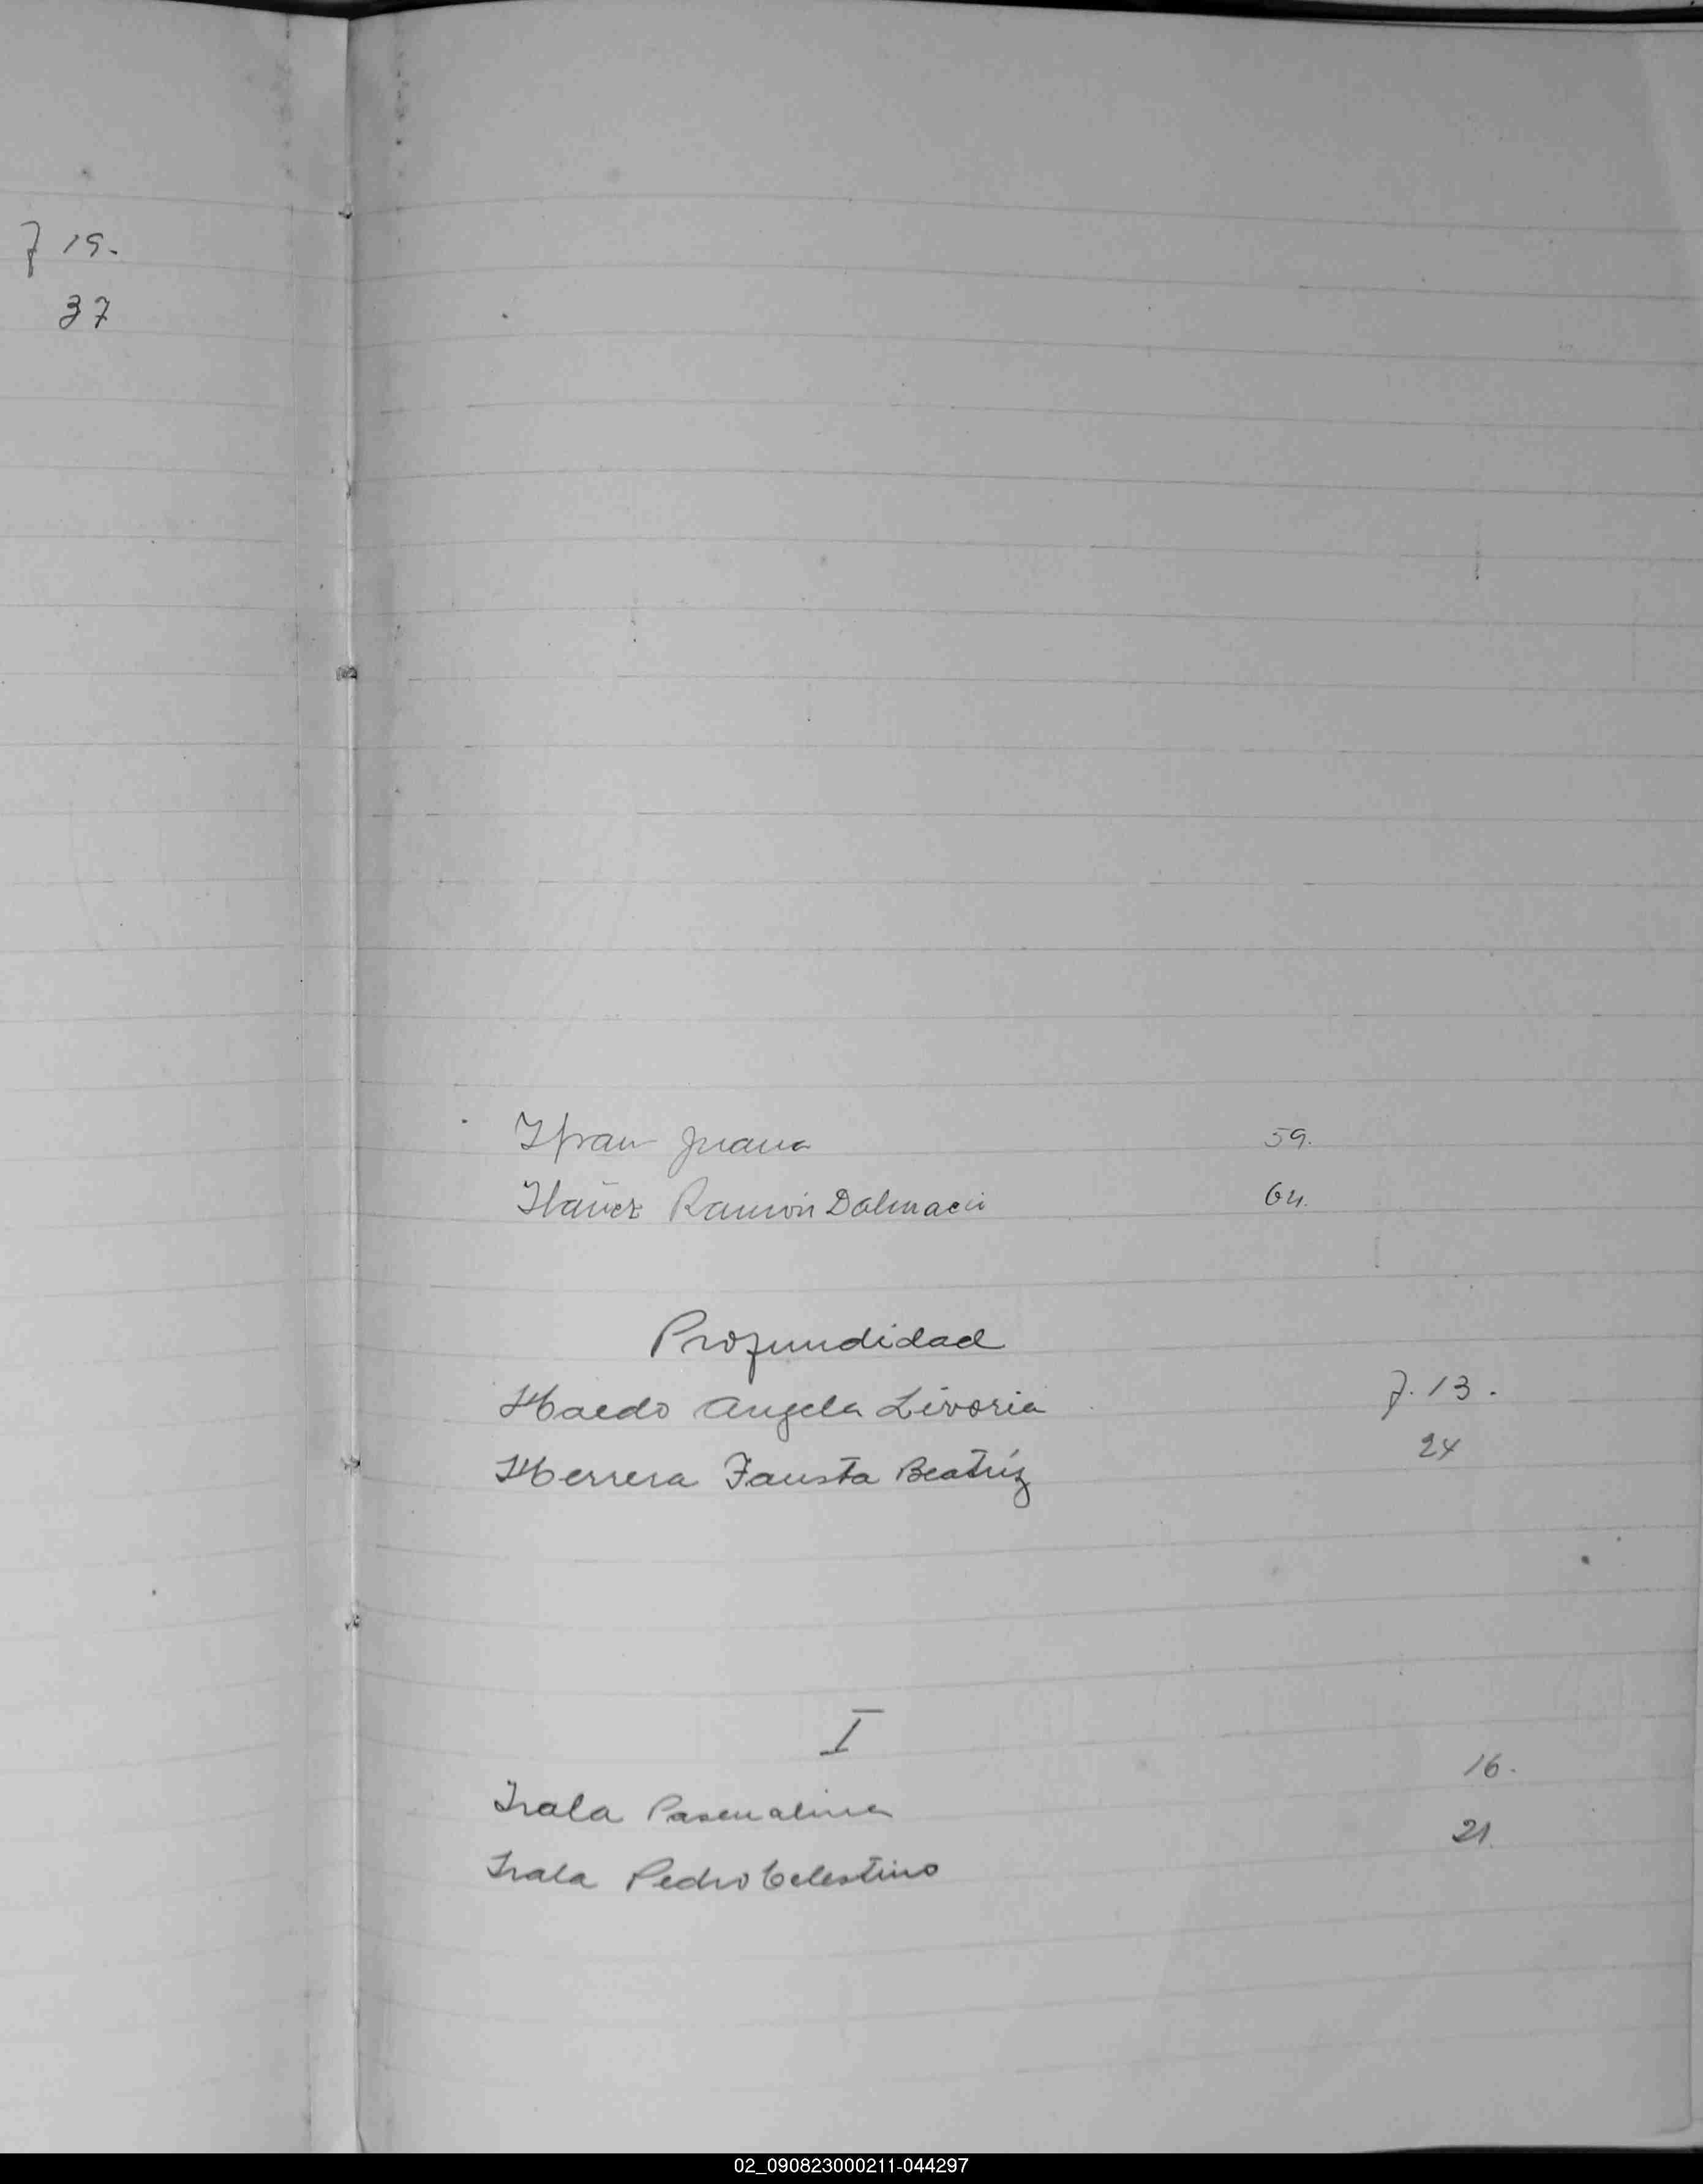 f 19.
37
Ifran Juana 59.
Ibañez Ramón Dalmacio 64.
Profundidad
Haedo Angela Livoria f. 13.
Herrera Fausta Beatríz 24
I
Irala Pascualina 16.
Irala Pedro Celestino 21
02_090823000211-044297